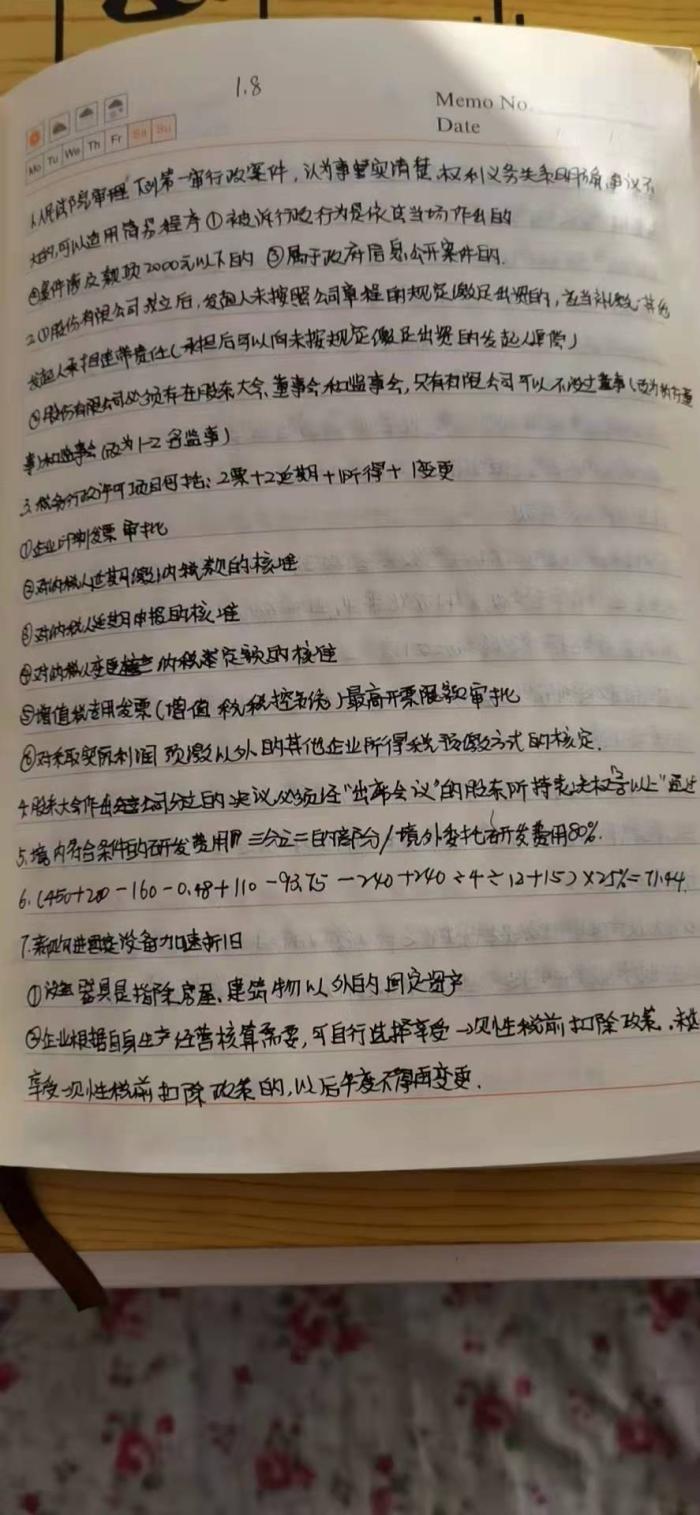 1.8
Memo No.
Date
Mo Tu We Th Fr Sa Su
1.人民法院审理下列第一审行政案件,认为事实清楚、权利义务关系明确、争议不
大的,可以适用简易程序①被诉行政行为是依法当场作出的
②案件涉及款项2000元以下的 ③属于政府信息公开案件的.
2.①股份有限公司成立后,发起人未按照公司章程的规定缴足出资的,应当补缴;其他
发起人承担连带责任(承担后可以向未按规定缴足出资的发起人追偿)
②股份有限公司必须存在股东大会、董事会和监事会,只有有限公司可以不设董事(改为执行董
事)和监事会(改为1-2名监事)
3.税务行政许可项目包括:2票+2延期+1所得+1变更
①企业印制发票审批
②对纳税人延期缴纳税款的核准
③对纳税人延期申报的核准
④对纳税人变更纳税定额的核准
⑤增值税专用发票(增值税税控系统)最高开票限额审批
⑥对采取实际利润预缴以外的其他企业所得税预缴方式的核定.
4.股东大会作出公司分立的决议,必须经"出席会议"的股东所持表决权以上"通过
5.境内符合条件的研发费用三分之二的部分/境外委托研发费用80%.
6.(450+200-160-0.48+110-93.75-240+240÷4÷12+15)×25%=71.44
7.新购进固定设备加速折旧
①设备器具是指除房屋、建筑物以外的固定资产
②企业根据自身生产经营核算需要,可自行选择享受一次性税前扣除政策.未选
享受一次性税前扣除政策的,以后年度不得再变更.